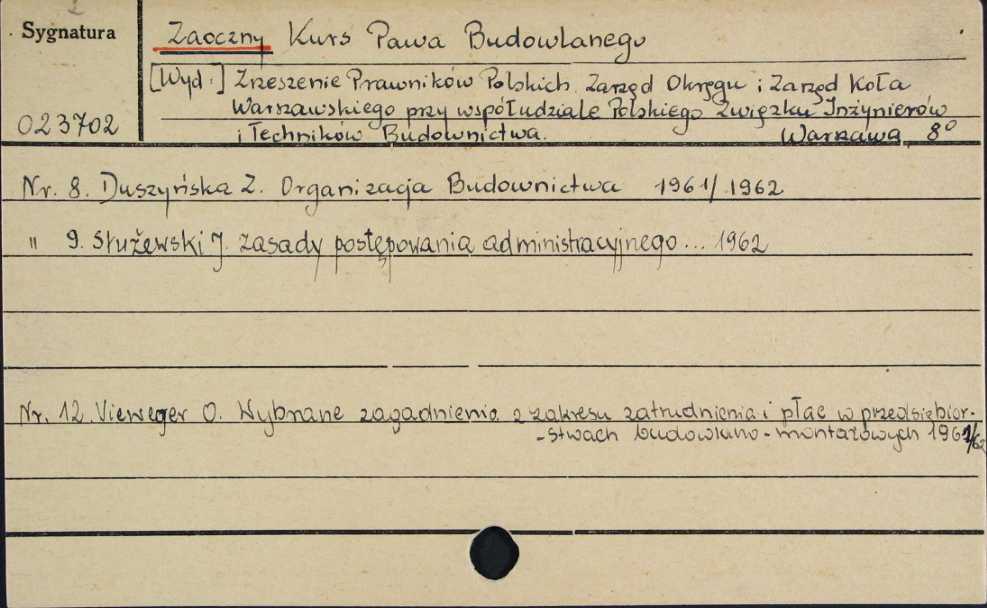 Sygnatura
Zaoczny Kurs Pawa Budowlanego
[Wyd.] Zrzeszenie Prawników Polskich. Zarząd Okręgu i Zarząd Koła
Warszawskiego przy współudziale Polskiego Związku Inżynierów
023702
i Techników Budownictwa. Warszawa 8°
Nr. 8. Duszyńska Z. Organizacja Budownictwa 1961/1962
" 9. Służewski J. Zasady postępowania administracyjnego... 1962
Nr. 12. Vieweger O. Wybrane zagadnienia z zakresu zatrudnienia i płac w przedsiębior-
-stwach budowlano-montażowych 1961/62